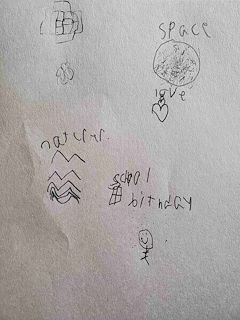 space
love
nature
scool
birnday